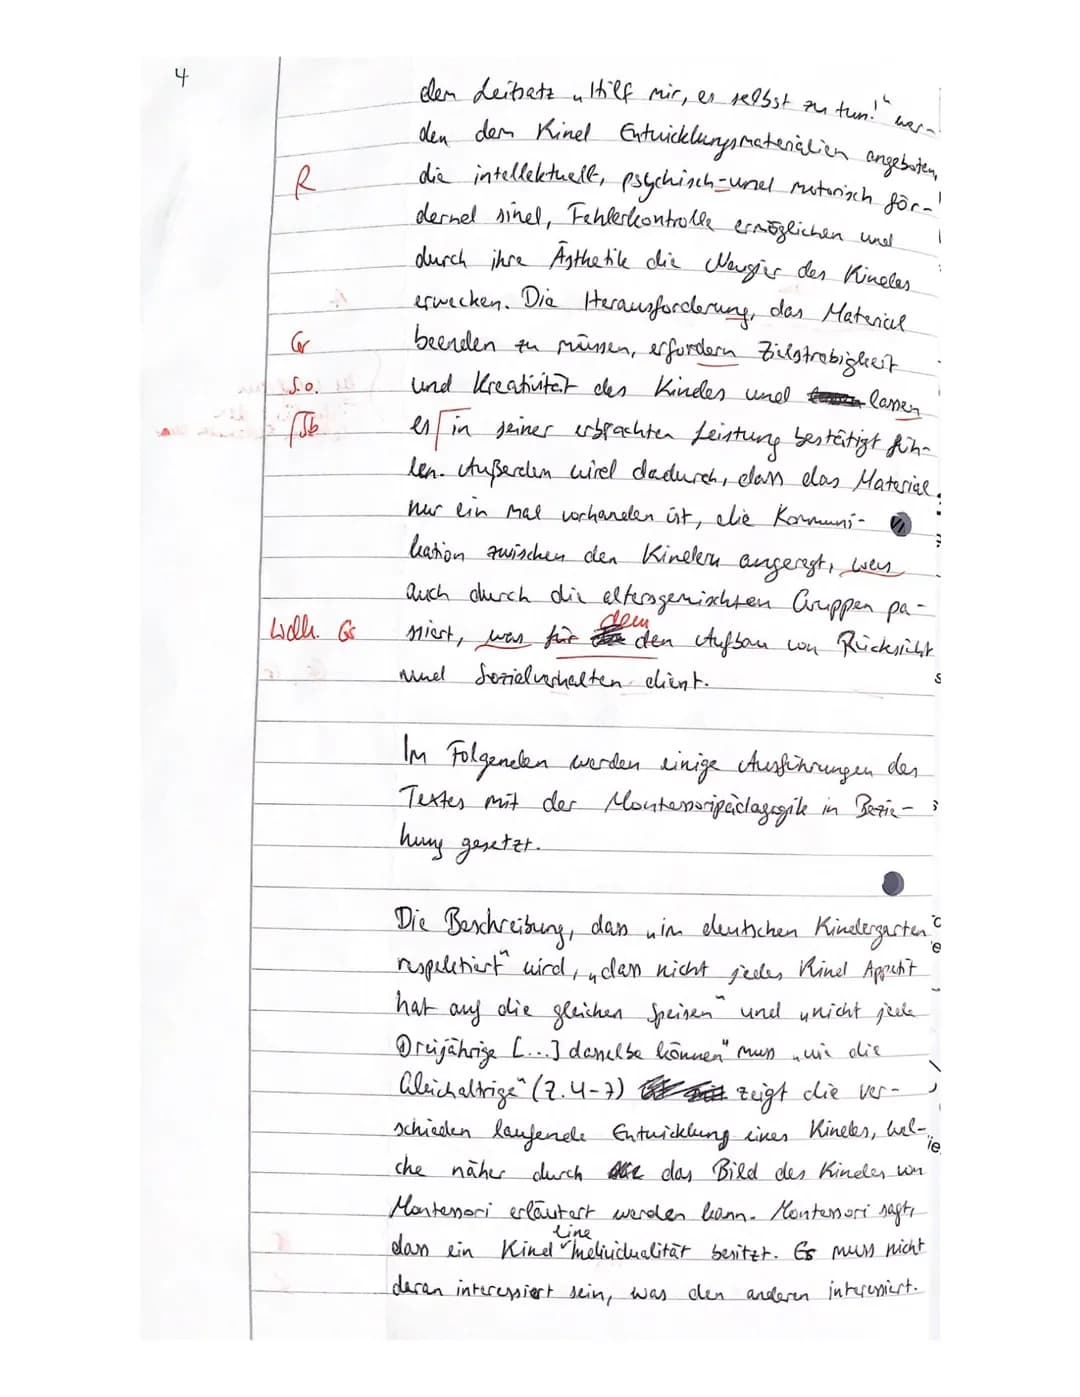 4
dem Leitsatz „Hilf mir, es selbst zu tun!" wer-
den dem Kind Entwicklungsmaterialien angeboten,
R die intellektuell, psychisch-und motorisch för-
dernd sind, Fehlerkontrolle ermöglichen und
durch ihre Ästhetik die Neugier des Kindes
erwecken. Die Herausforderung, das Material
Gr beenden zu müssen, erfordern Zielstrebigkeit
s.o. und Kreativität des Kindes und lassen
Γ Sb es Γ in seiner erbrachten Leistung bestätigt füh-
len. Außerdem wird dadurch, dass das Material
nur ein Mal vorhanden ist, die Kommuni-
kation zwischen den Kindern angeregt, was
auch durch die altersgemischten Gruppen pa-
dem
Wdh. Gr ssiert, was für den Aufbau von Rücksicht
und Sozialverhalten dient.
Im Folgenden werden einige Ausführungen des
Textes mit der Montessoripädagogik in Bezie-
hung gesetzt.
Die Beschreibung, dass „im deutschen Kindergarten
respektiert" wird, „dass nicht jedes Kind Appetit
hat auf die gleichen Speisen" und „nicht jede
Dreijährige [...] dasselbe können" muss „wie die
Gleichaltrige" (Z.4-7) zeigt die ver-
schieden laufende Entwicklung eines Kindes, wel-
che näher durch das Bild des Kindes von
Montessori erläutert werden kann. Montessori sagt,
eine
dass ein Kind Individualität besitzt. Es muss nicht
daran interessiert sein, was den anderen interessiert.